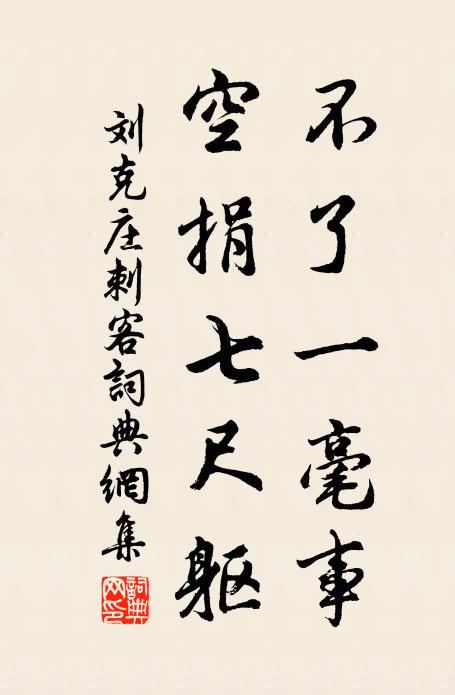 不了一毫事
空捐七尺躯
刘克庄刺客詞典網集
詞典网印